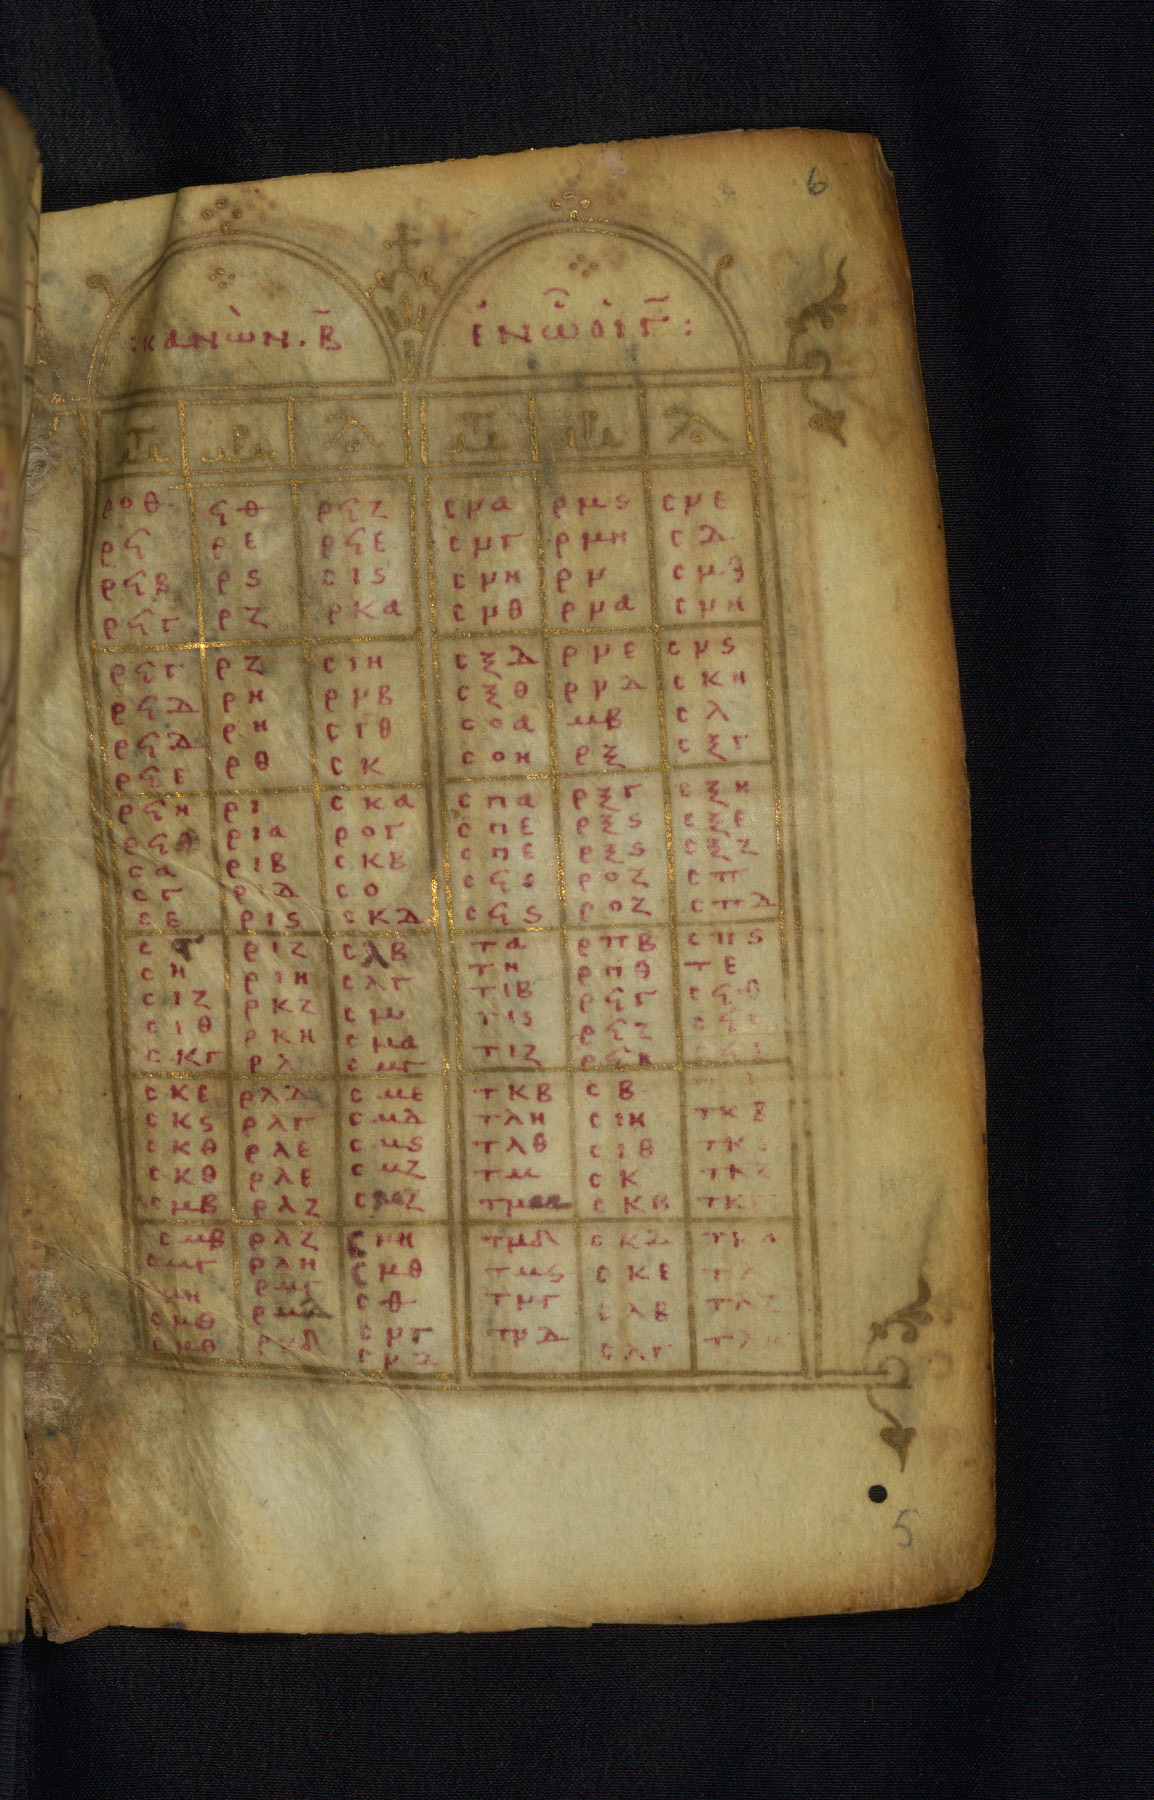 6
:κανὼν. Β̄ ἐν ὧ οἱ Γ̄:
Μτ Μρ Λο Μτ Μρ Λο
ροθ ϟθ ρϟζ σμα ρμϛ σμε
ρϟ ρε ρϟε σμγ ρμη σδ
ρϟβ ρϛ σιϛ σμη ρμ
ρϟγ ρζ ρκα σμθ ρμα σμη
ρϟγ ρζ σιη σξδ ρμε σμϛ
ρϟδ ρη ρμβ σξθ ρμδ σκη
ρϟδ ρη σιθ σοα μβ σλ
ρϟε ρθ σκ σοη ρξ σξγ
ρϟη ρι σκα σπα ρξγ σξη
ρϟθ ρια ρογ σπε ρξϛ σξε
σα ριβ σκβ σπε ρξϛ σξζ
σγ ριδ σο σϟϛ ροζ σπ
σε ριϛ σκδ σϟϛ ροζ σπδ
σ ριζ σλβ τα ρπβ σπϛ
ση ριη σλγ τη ρπθ τε
σιζ ρκζ σμ τιβ ρϟγ σϟθ
σιθ ρκη σμα τιϛ ρϟζ
σκγ ρλ σμγ τιζ ρϟη
σκε ρλδ σμε τκβ σβ
σκϛ ρλγ σμδ τλη σιη τκβ
σκθ ρλε σμϛ τλθ σιθ
σκθ ρλε σμζ τμ σκ
σμβ ρλζ σμζ σκβ
σμβ ρλζ σμη τμδ σκδ
σμγ ρλη σμθ τμϛ σκε
μη ρμγ σθ τμγ σλβ
σμθ σμγ τμδ σλγ
σμθ σμδ
5